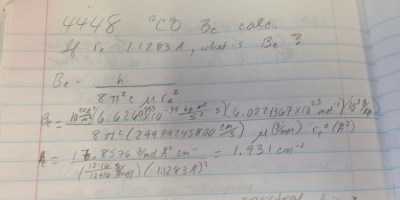 4448 ¹²C¹⁶O Be calc.
If re = 1.1283 Å, what is Be?
Be = h
8π²c μ re²
Be = 10²⁰ Å²/m² 6.626×10⁻³⁴ kg m²/s² s)(6.0221367×10²³ mol⁻¹)(10³ g/kg)
8π²(29979245800 cm/s) μ (g/mol) re² (Å²)
B = 16.8576 g/mol Å² cm⁻¹ = 1.931 cm⁻¹
(12·16/12+16 g/mol)(1.1283 Å)²